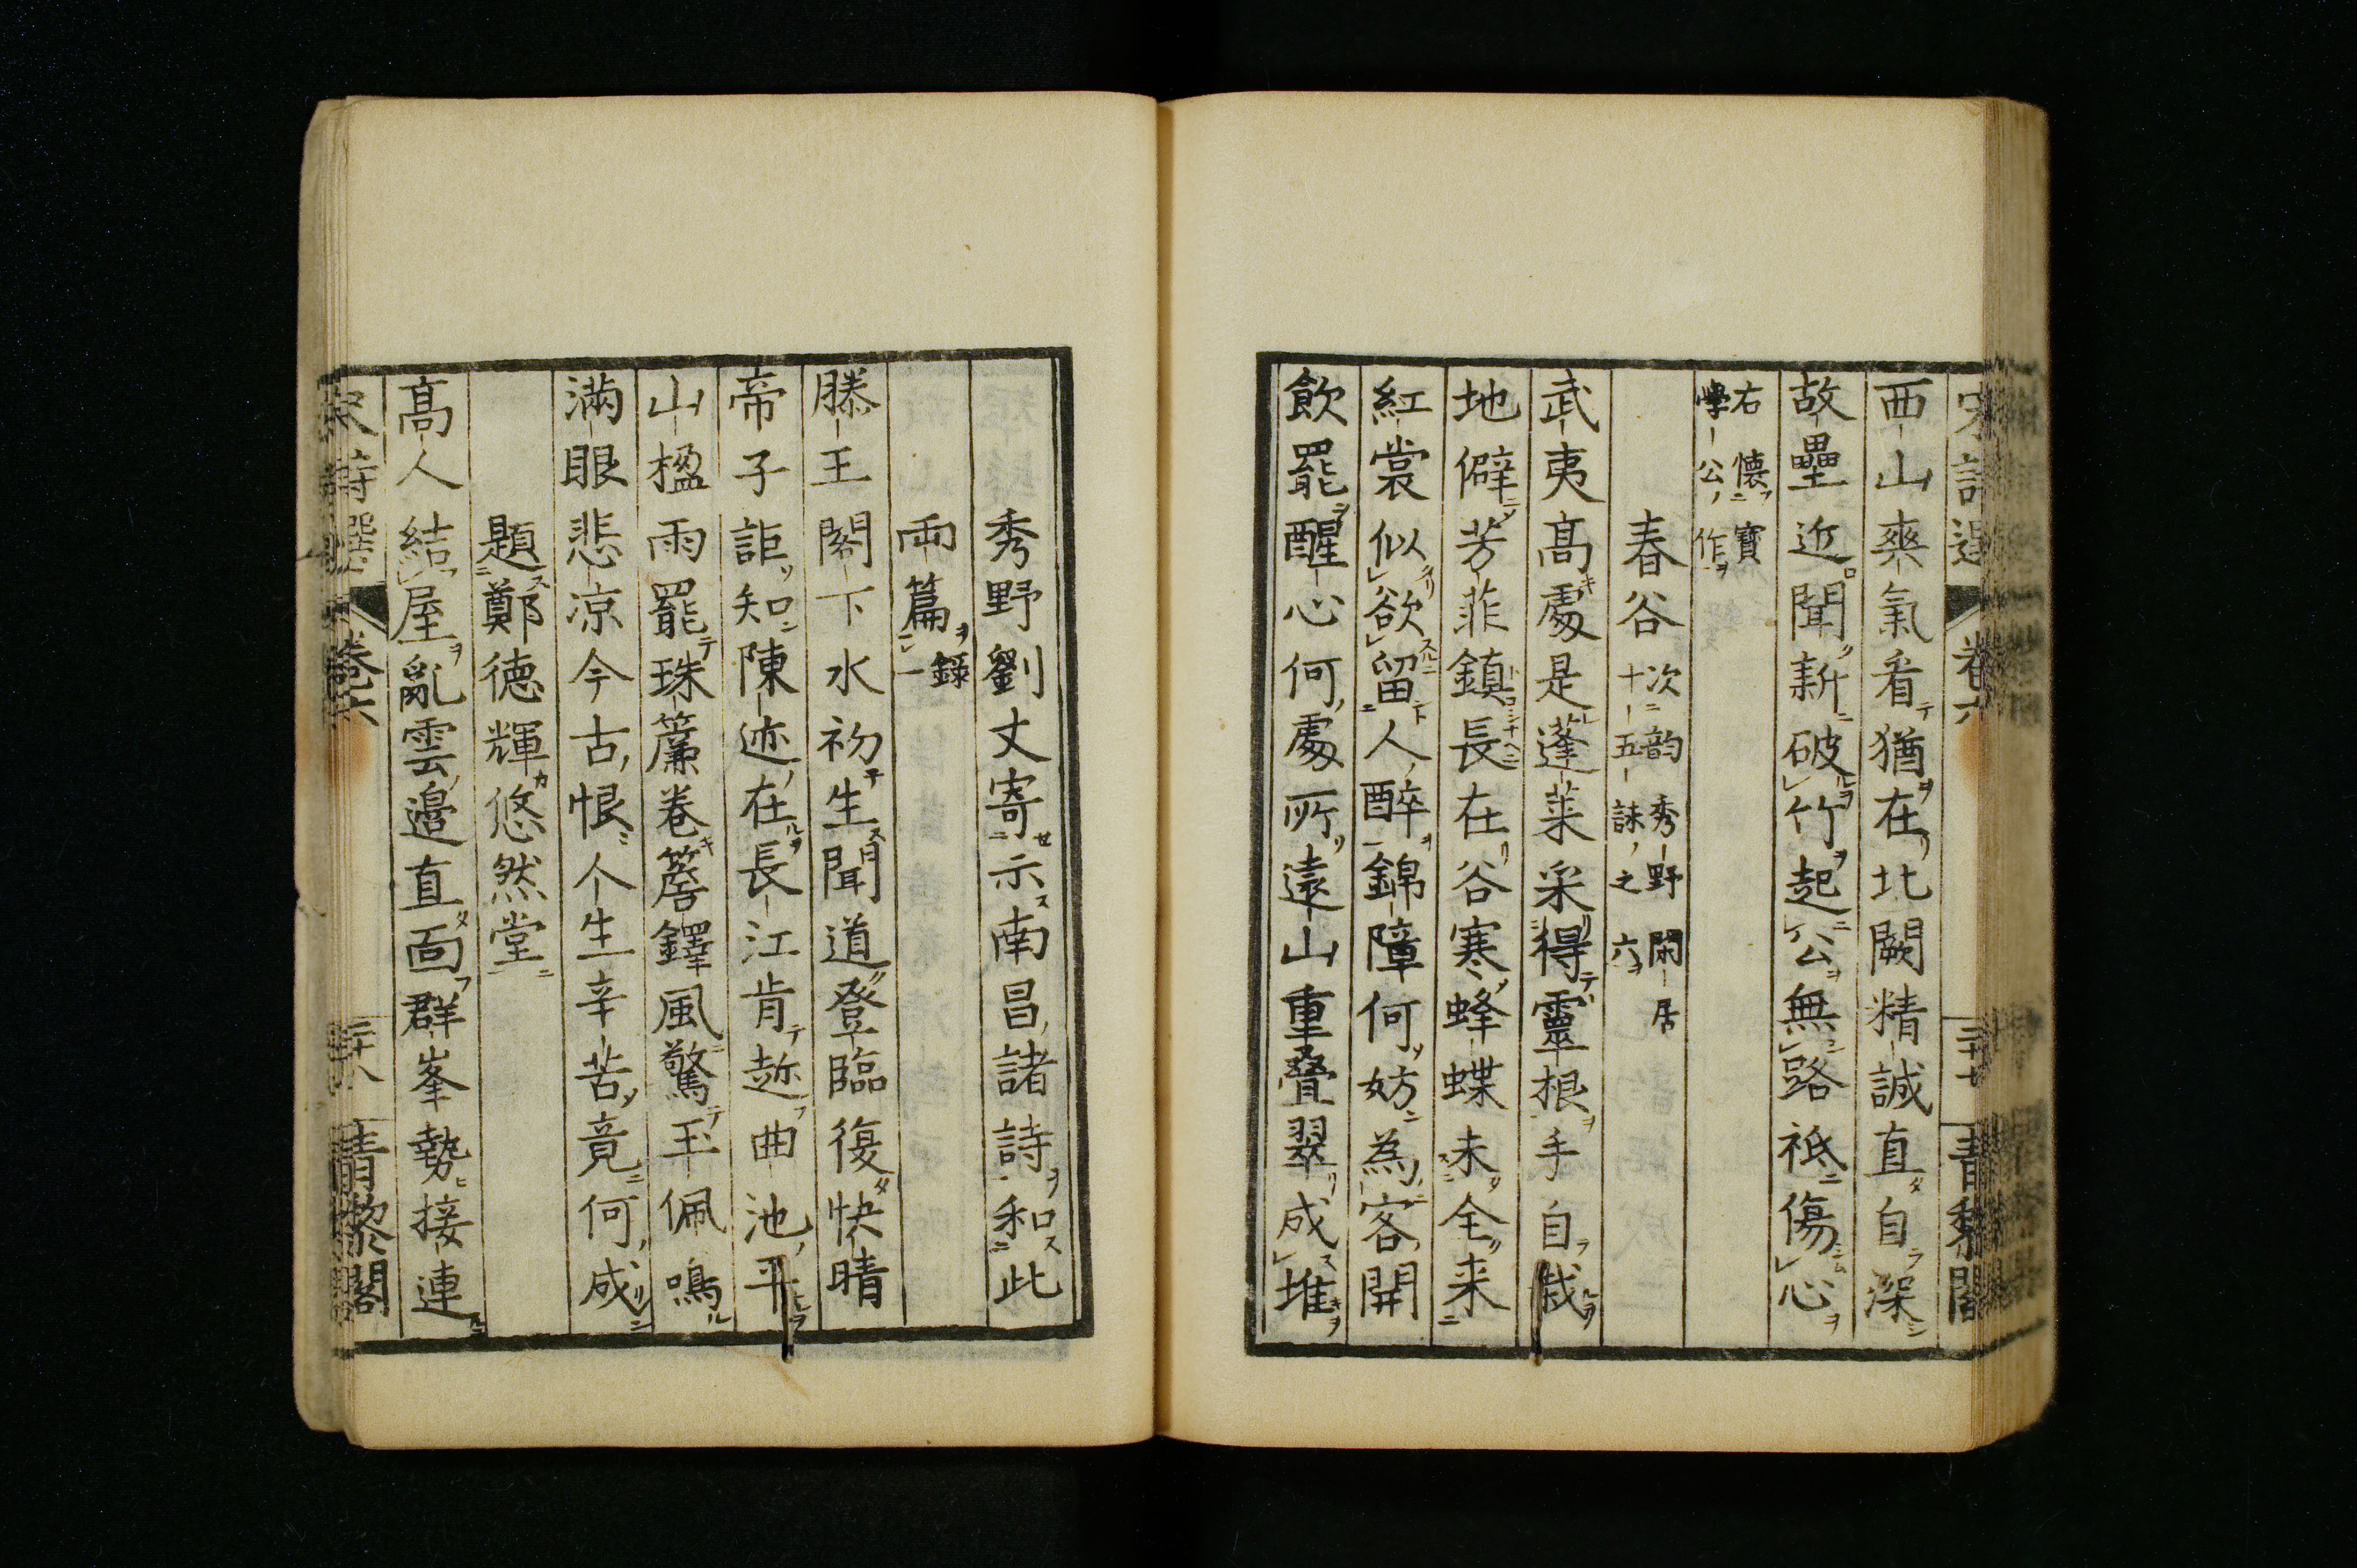 西山爽氣看猶在北闕精誠直自深
故壘近聞新破竹起公無路祗傷心
右懐寶
學公作
春谷 次韵秀野閑居
十五詠之六
武夷髙處是蓬莱采得靈根手自栽
地僻芳菲鎮長在谷寒蜂蝶未全来
紅裳似欲留人醉錦障何妨為客開
飲罷醒心何處所遠山重疊翠成堆
秀野劉丈寄示南昌諸詩和此
兩篇 錄一
滕王閣下水初生聞道登臨復快晴
帝子詎知陳迹在長江肯趂曲池平
山楹雨罷珠簾卷簷鐸風驚玉佩鳴
滿眼悲凉今古恨人生辛苦竟何成
題鄭德輝悠然堂
髙人結屋亂雲邉直面群峯勢接連
宋詩選 卷六 三十八 青藜閣